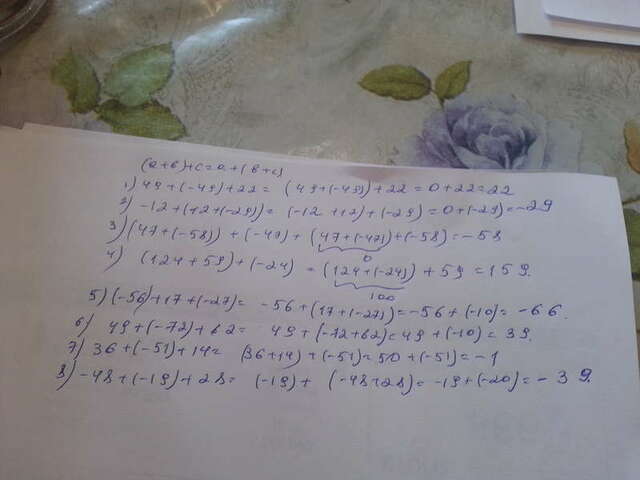 (a+b)+c=a+(b+c)
1) 49+(-49)+22= (49+(-49))+22=0+22=22
2) -12+(+2+(-29))= (-12+12)+(-29)=0+(-29)=-29
3) (47+(-58))+(-47)+(47+(-47)+(-58)=-58
0
4) (124+59)+(-24) =(124+(-24))+59=159.
100
5) (-56)+17+(-27)= -56+(17+(-27)=-56+(-10)=-66.
6) 49+(-72)+62= 49+(-72+62)=49+(-10)=39.
7) 36+(-51)+14= (36+14)+(-51)=50+(-51)=-1
8) -48+(-19)+28= (-19)+ (-48+28)=-19+(-20)=-39.